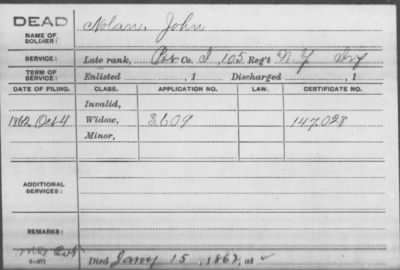 DEAD
NAME OF SOLDIER:
Nolan, John
SERVICE:
Late rank, Pvt Co. I, 105 Reg't N Y Inf
TERM OF SERVICE:
Enlisted , 1 Discharged , 1
DATE OF FILING. CLASS. APPLICATION NO. LAW. CERTIFICATE NO.
Invalid,
1862 Oct 4 Widow, 3609 147,028
Minor,
ADDITIONAL SERVICES:
REMARKS:
Died Jany 15, 1862, at